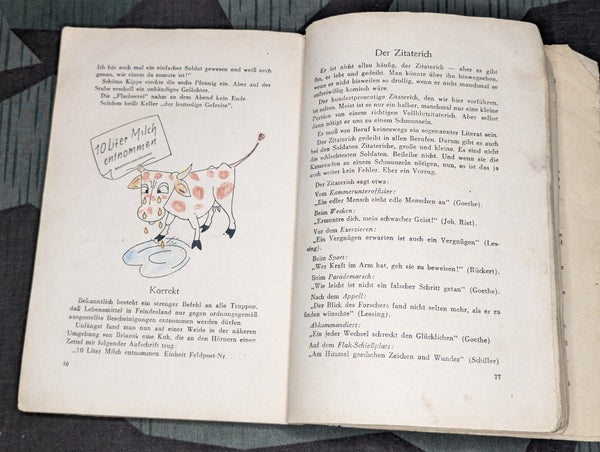 Ich bin auch mal ein einfacher Soldat gewesen und weiß noch
genau, wie einem da zumute ist!"
Schütze Kippe steckte die sechs Pfennig ein. Aber auf der
Stube erscholl ein unbändiges Gelächter.
Die „Flachserei" nahm an dem Abend kein Ende.
Seitdem heißt Keller „der leutselige Gefreite".
10 Liter Milch
entnommen
Korrekt
Bekanntlich besteht ein strenger Befehl an alle Truppen,
daß Lebensmittel in Feindesland nur gegen ordnungsgemäß
ausgestellte Bescheinigungen entnommen werden dürfen.
Unlängst fand man nun auf einer Weide in der näheren
Umgebung von Briansk eine Kuh, die an den Hörnern einen
Zettel mit folgender Aufschrift trug:
„10 Liter Milch entnommen Einheit Feldpost-Nr. . . . .
76
Der Zitaterich
Er ist nicht allzu häufig, der Zitaterich — aber es gibt
ihn, er lebt und gedeiht. Man könnte über ihn hinwegsehen,
wenn er nicht bisweilen so störend, wenn er nicht manchmal so
unfreiwillig komisch wäre.
Der hundertprozentige Zitaterich, den wir hier vorführen,
ist selten. Meist ist es nur ein halber, manchmal nur eine kleine
Portion von einem richtigen Vollblutzitaterich. Aber selbst
dann nötigt er uns zu einem Schmunzeln.
Er muß von Beruf keineswegs ein sogenannter Literat sein.
Der Zitaterich gedeiht in allen Berufen. Darum gibt es auch
bei den Soldaten Zitateriche, große und kleine. Es sind nicht
die schlechtesten Soldaten. Beileibe nicht. Und wenn sie die
Kameraden zu einem Schmunzeln nötigen, nun, so ist das ja
auch weiter kein Fehler. Eher ein Vorzug.
Der Zitaterich sagt etwa:
Vom Kammerunteroffizier:
„Ein edler Mensch zieht edle Menschen an" (Goethe).
Beim Wecken:
„Ermuntre dich, mein schwacher Geist!" (Joh. Rist).
Vor dem Exerzieren:
„Ein Vergnügen erwarten ist auch ein Vergnügen" (Les-
sing).
Beim Sport:
„Wer Kraft im Arm hat, geh sie zu beweisen!" (Rückert).
Beim Parademarsch:
„Wie leicht ist nicht ein falscher Schritt getan" (Goethe).
Nach dem Appell:
„Der Blick des Forschers fand nicht selten mehr, als er zu
finden wünschte" (Lessing).
Abkommandiert:
„Ein jeder Wechsel schreckt den Glücklichen" (Goethe)
Auf dem Flak-Schießplatz:
„Am Himmel geschehen Zeichen und Wunder" (Schiller)
77